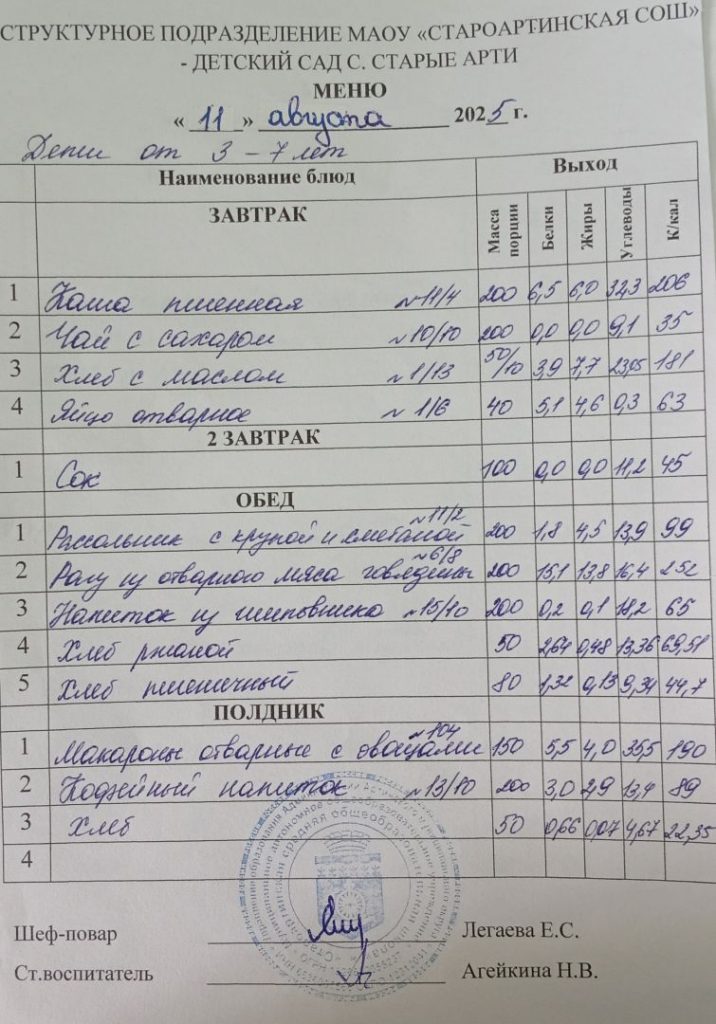 СТРУКТУРНОЕ ПОДРАЗДЕЛЕНИЕ МАОУ «СТАРОАРТИНСКАЯ СОШ»
- ДЕТСКИЙ САД С. СТАРЫЕ АРТИ
МЕНЮ
« 11 » августа 2025 г.
Дети от 3 – 7 лет
Наименование блюд Выход
ЗАВТРАК Масса порции Белки Жиры Углеводы К/кал
1 Каша пшенная №11/4 200 6,5 6,0 32,3 206
2 Чай с сахаром №10/10 200 0,0 0,0 9,1 35
3 Хлеб с маслом №1/13 50/10 3,9 7,7 23,05 181
4 Яйцо отварное №1/6 40 5,1 4,6 0,3 63
2 ЗАВТРАК
1 Сок 100 0,0 0,0 11,2 45
ОБЕД
1 Рассольник с крупой и сметаной №11/2 200 1,8 4,5 13,9 99
2 Рагу из отварного мяса говядины №6/8 200 15,1 13,8 16,4 252
3 Напиток из шиповника №15/10 200 0,2 0,1 65
4 Хлеб ржаной 50 2,64 0,48 13,36 69,51
5 Хлеб пшеничный 80 1,32 0,13 9,34 44,7
ПОЛДНИК
1 Макароны отварные с овощами №104 150 5,5 4,0 35,5 190
2 Кофейный напиток №13/10 200 3,0 2,9 13,4 89
3 Хлеб 50 0,66 0,07 4,67 22,35
4
Шеф-повар Легаева Е.С.
Ст.воспитатель Агейкина Н.В.